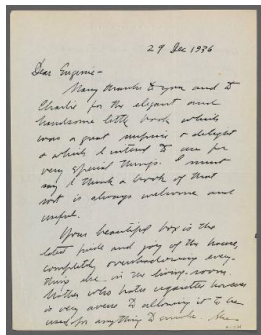 29 Dec 1936
Dear Eugenie-
Many thanks to you and to
Charlie for the elegant and
handsome little book which
was a great surprise & delight
& which I intend to use for
very special things. I must
say I think a book of that
sort is always welcome and
useful.
Your beautiful box is the
latest pride and joy of the house,
completely overshadowing every-
thing else in the living-room.
Mother who hates cigarette boxes
is very averse to allowing it to be
used for anything to smoke. She